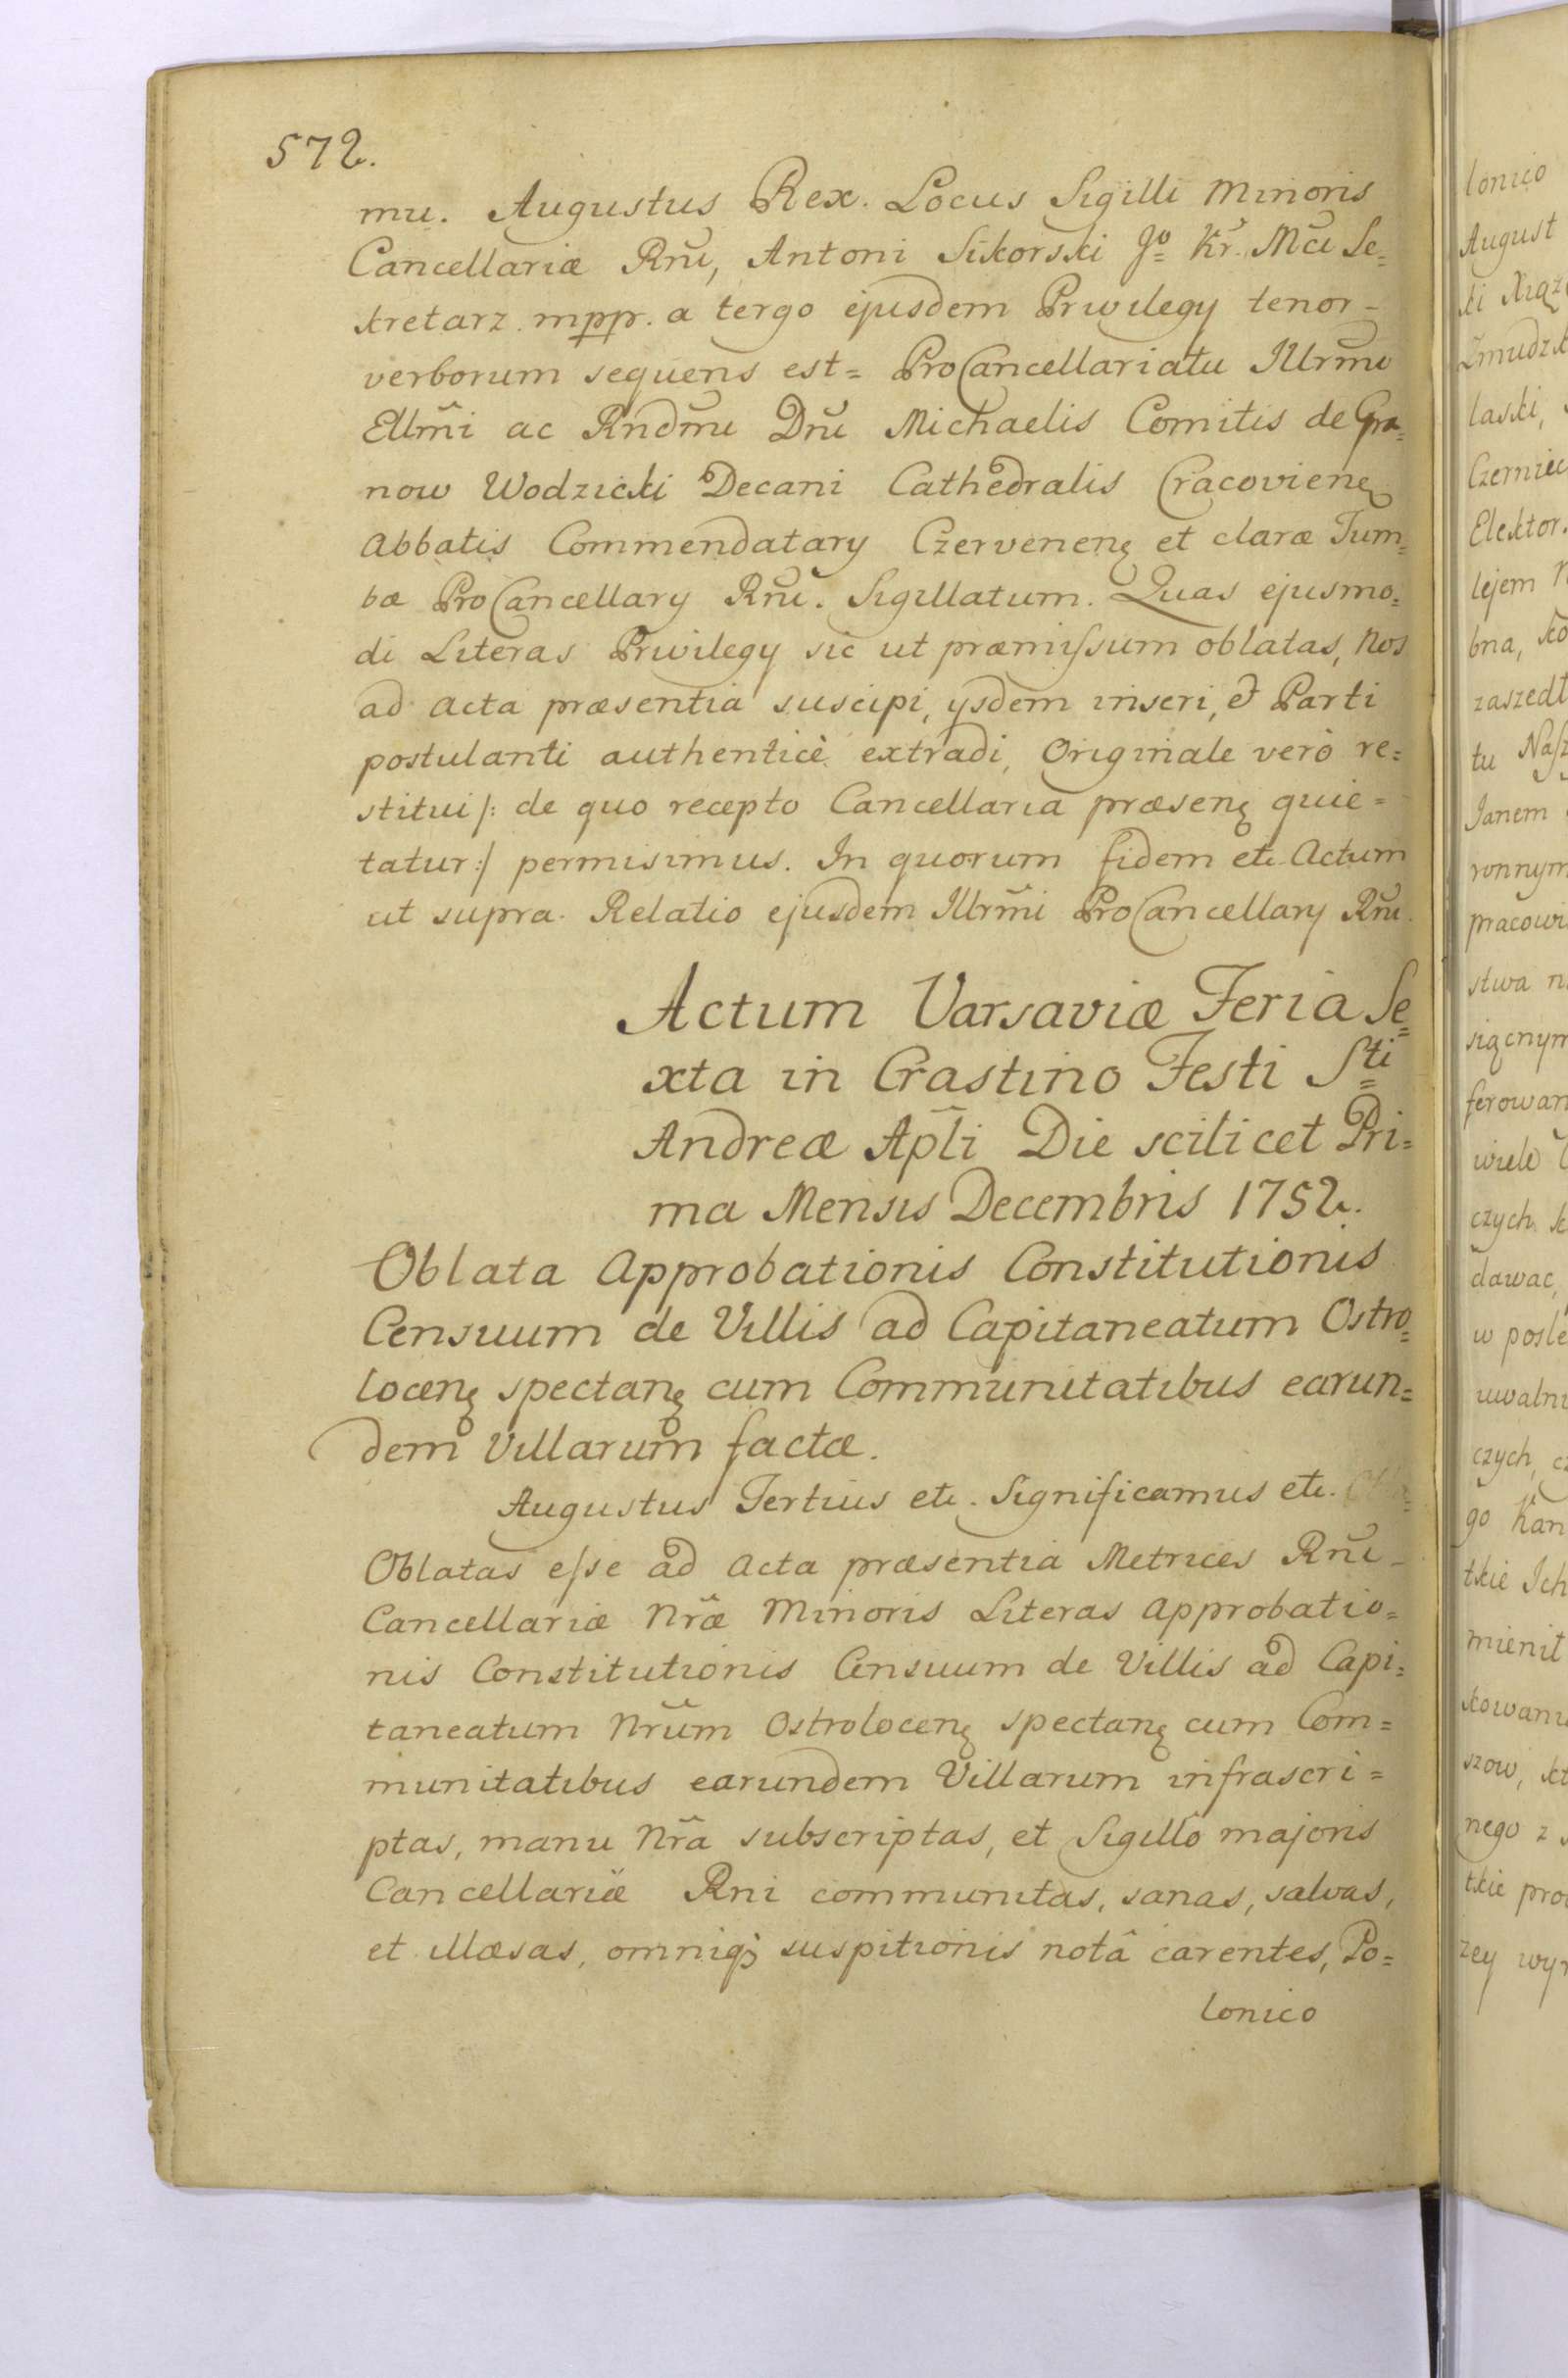 572.
mu. Augustus Rex. Locus Sigilli Minoris
Cancellariæ Rnĩ, Antoni Sikorski Jº Kr̃. Mc̃i Se=
kretarz. mppr. a tergo ejusdem Privilegy tenor
verborum sequens est= ProCancellariatu Illrmi
Ellm̃i ac Rndm̃i Dnĩ Michaelis Comitis de Gra=
now Wodzicki Decani Cathedralis Cracovienȩ
Abbatis Commendatary Czervenenȩ et claræ Tum=
bæ ProCancellary Rnĩ. Sigillatum. Quas ejusmo=
di Literas Privilegy sic ut præmissum oblatas, Nos
ad acta præsentia suscipi, ysdem inseri, et Parti
postulanti authenticè extradi, Originale verò re=
stitui /: de quo recepto Cancellaria præsenȩ quie=
tatur :/ permisimus. In quorum fidem etc. Actum
ut supra. Relatio ejusdem Illrm̃i ProCancellary Rnĩ.
Actum Varsaviæ Feria Se=
xta in Crastino Festi Sti
Andreæ Apl̃i Die scilicet Pri=
ma Mensis Decembris 1752.
Oblata Approbationis Constitutionis
Censuum de Villis ad Capitaneatum Ostro=
locenȩ spectanȩ cum Communitatibus earun=
dem Villarum factæ.
Augustus Tertius etc. Significamus etc.
Oblatas esse ad Acta præsentia Metrices Rnĩ
Cancellariæ Nr̃æ Minoris Literas Approbatio=
nis Constitutionis Censuum de Villis ad Capi=
taneatum Nr̃um Ostrolocenȩ spectanȩ cum Com=
munitatibus earundem Villarum infrascri=
ptas, manu Nr̃a subscriptas, et Sigillo majoris
Cancellariæ Rni communitas, sanas, salvas,
et illæsas, omniqȝ suspitionis notâ carentes, Po=
lonico
lonico
August
laski,
Elektor.
lejem
bna,
tu
Janem
stwa
dawac,
w
go
tskie
nego z
tskie
zey